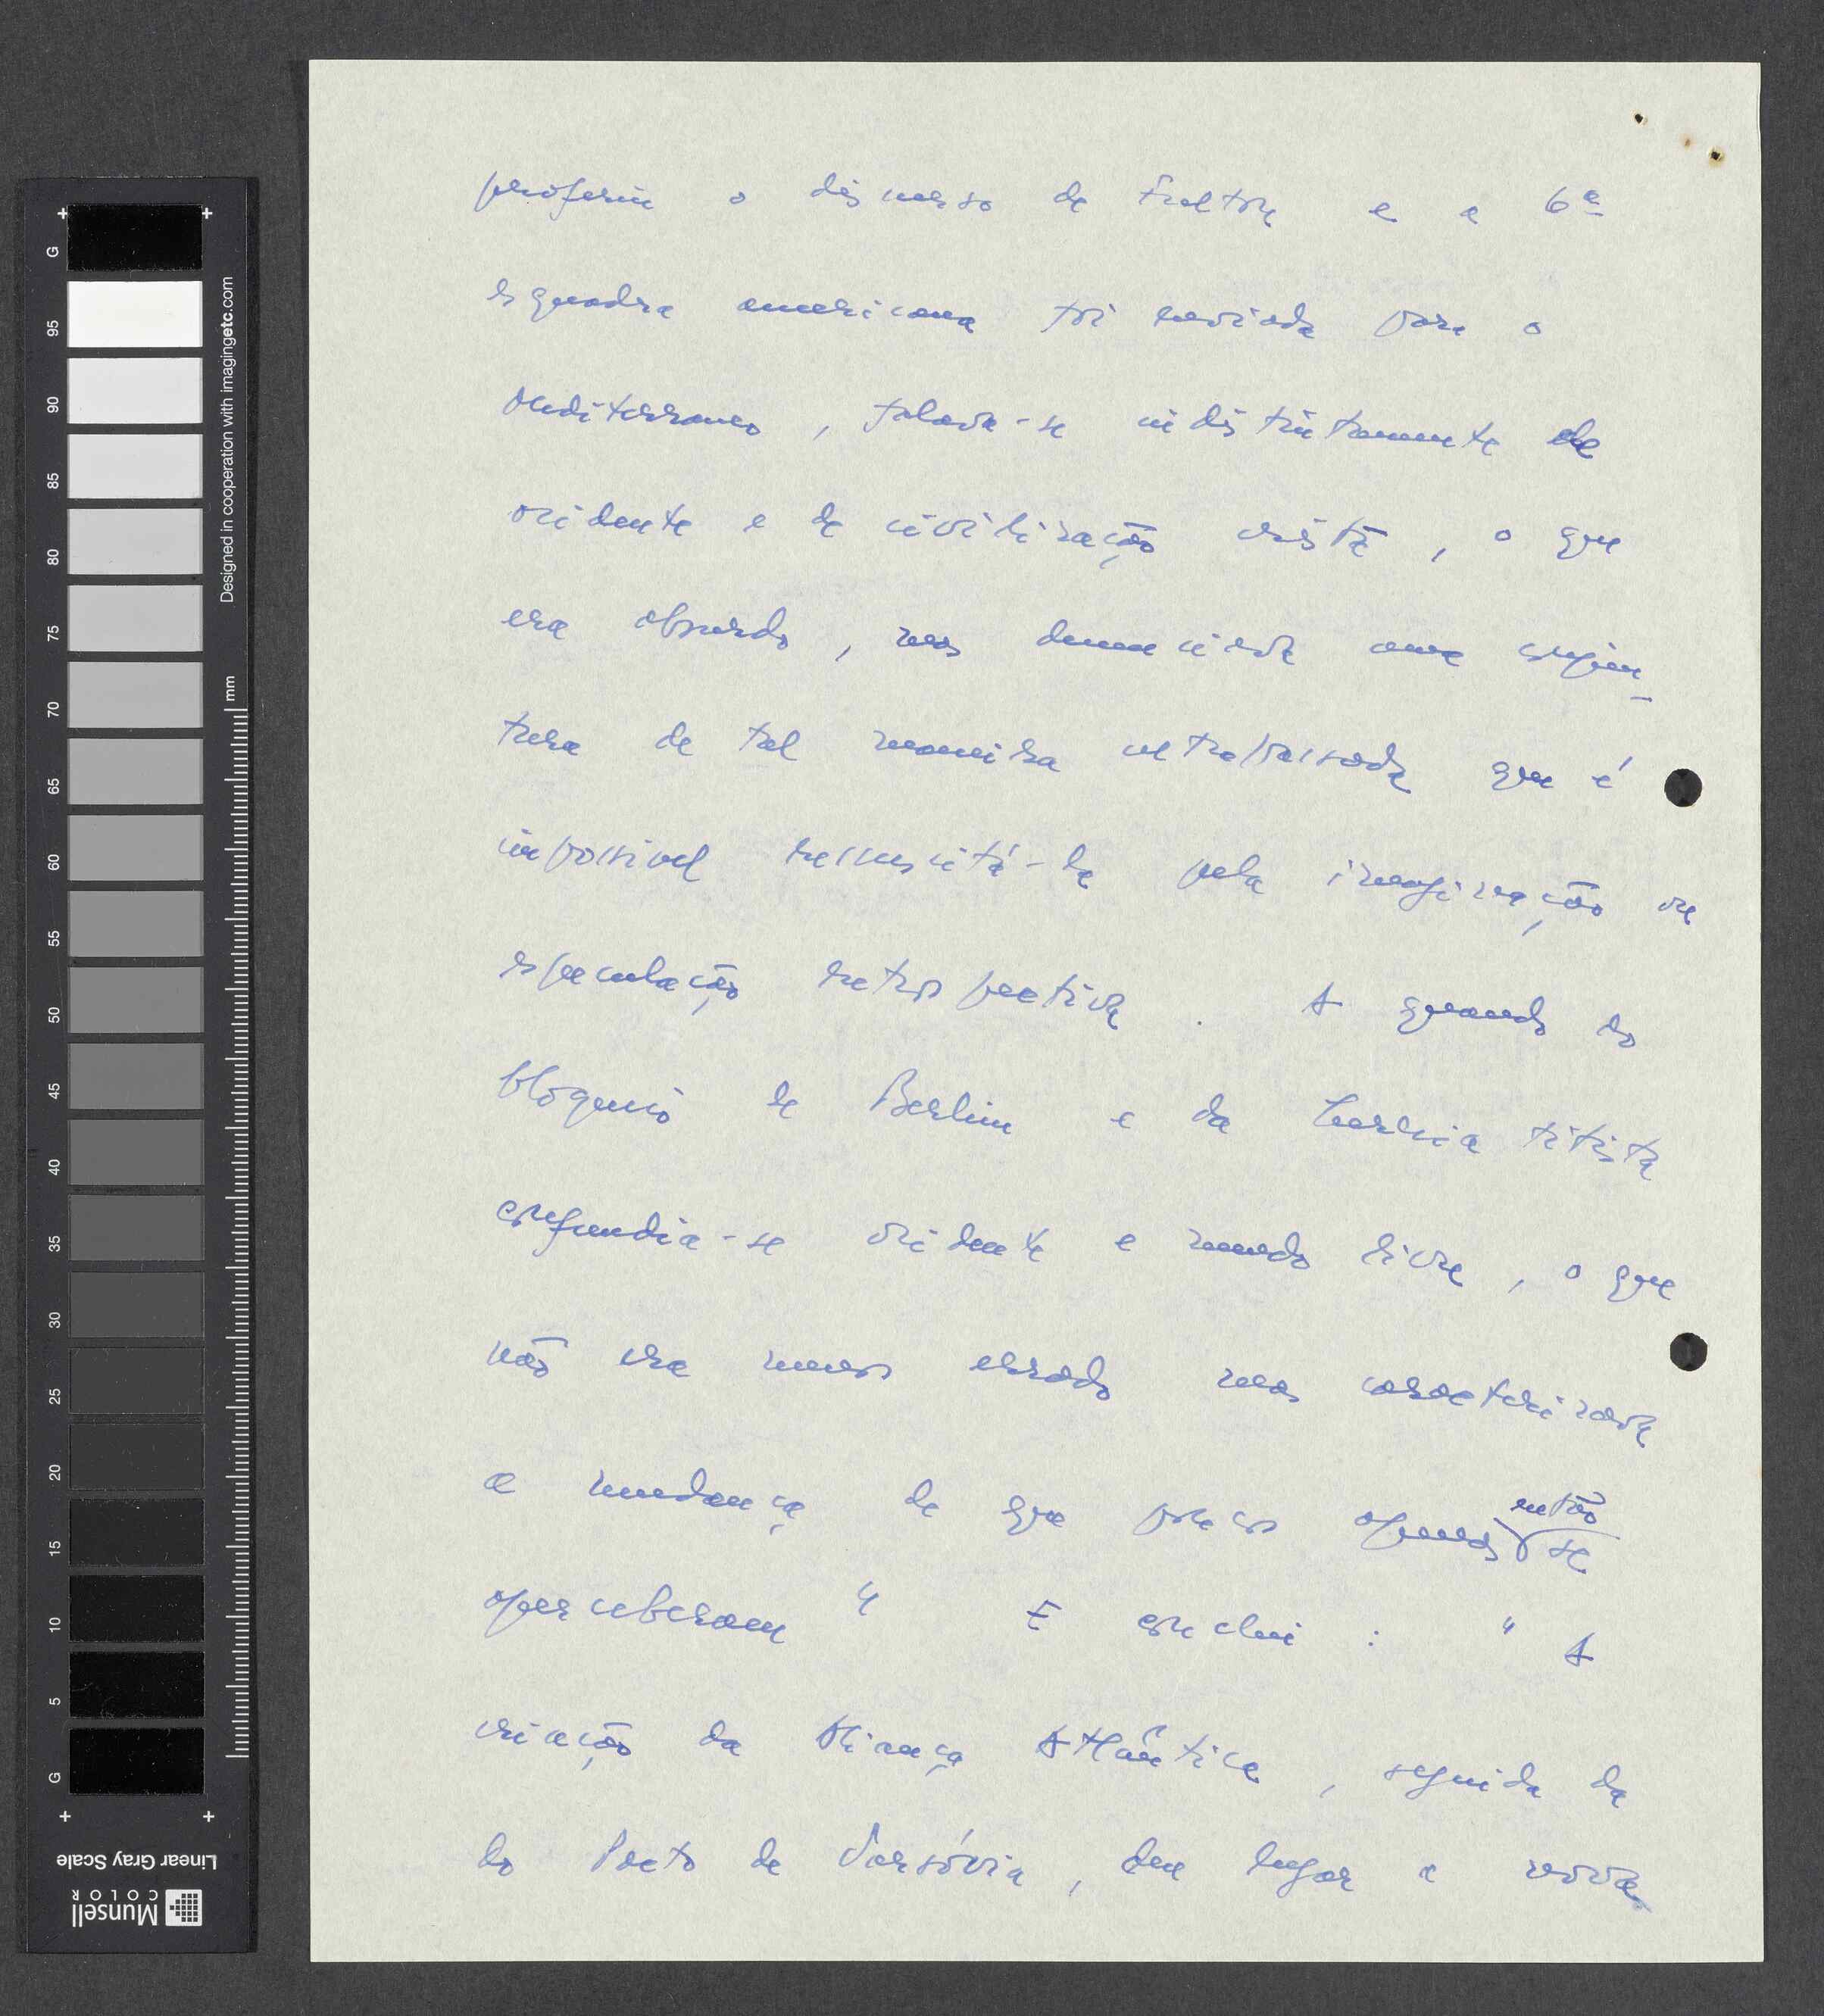 proferiu o discurso de Fulton e a 6ª
esquadra americana foi enviada para o
Mediterraneo, falava-se indistintamente de
ocidente e de civilização cristã, o que
era absurdo, mas denunciava uma conjun-
tura de tal maneira ultrapassada que é
impossivel ressuscitá-la pela imaginação ou
especulação retrospectiva. A quando do
bloqueio de Berlim e da heresia titista
confundia-se ocidente e mundo livre, o que
não era menos errado mas caracterizava
a mudança de que poucos apenas então se
aperceberam" E conclui: "A
criação da Aliança Atlântica, seguida da
do Pacto de Varsóvia, deu lugar a nova
G 95 90 85 80 75 70 65 60 55 50 45 40 35 30 25 20 15 10 5 G
mm
Designed in cooperation with imagingetc.com
Linear Gray Scale
Munsell
COLOR